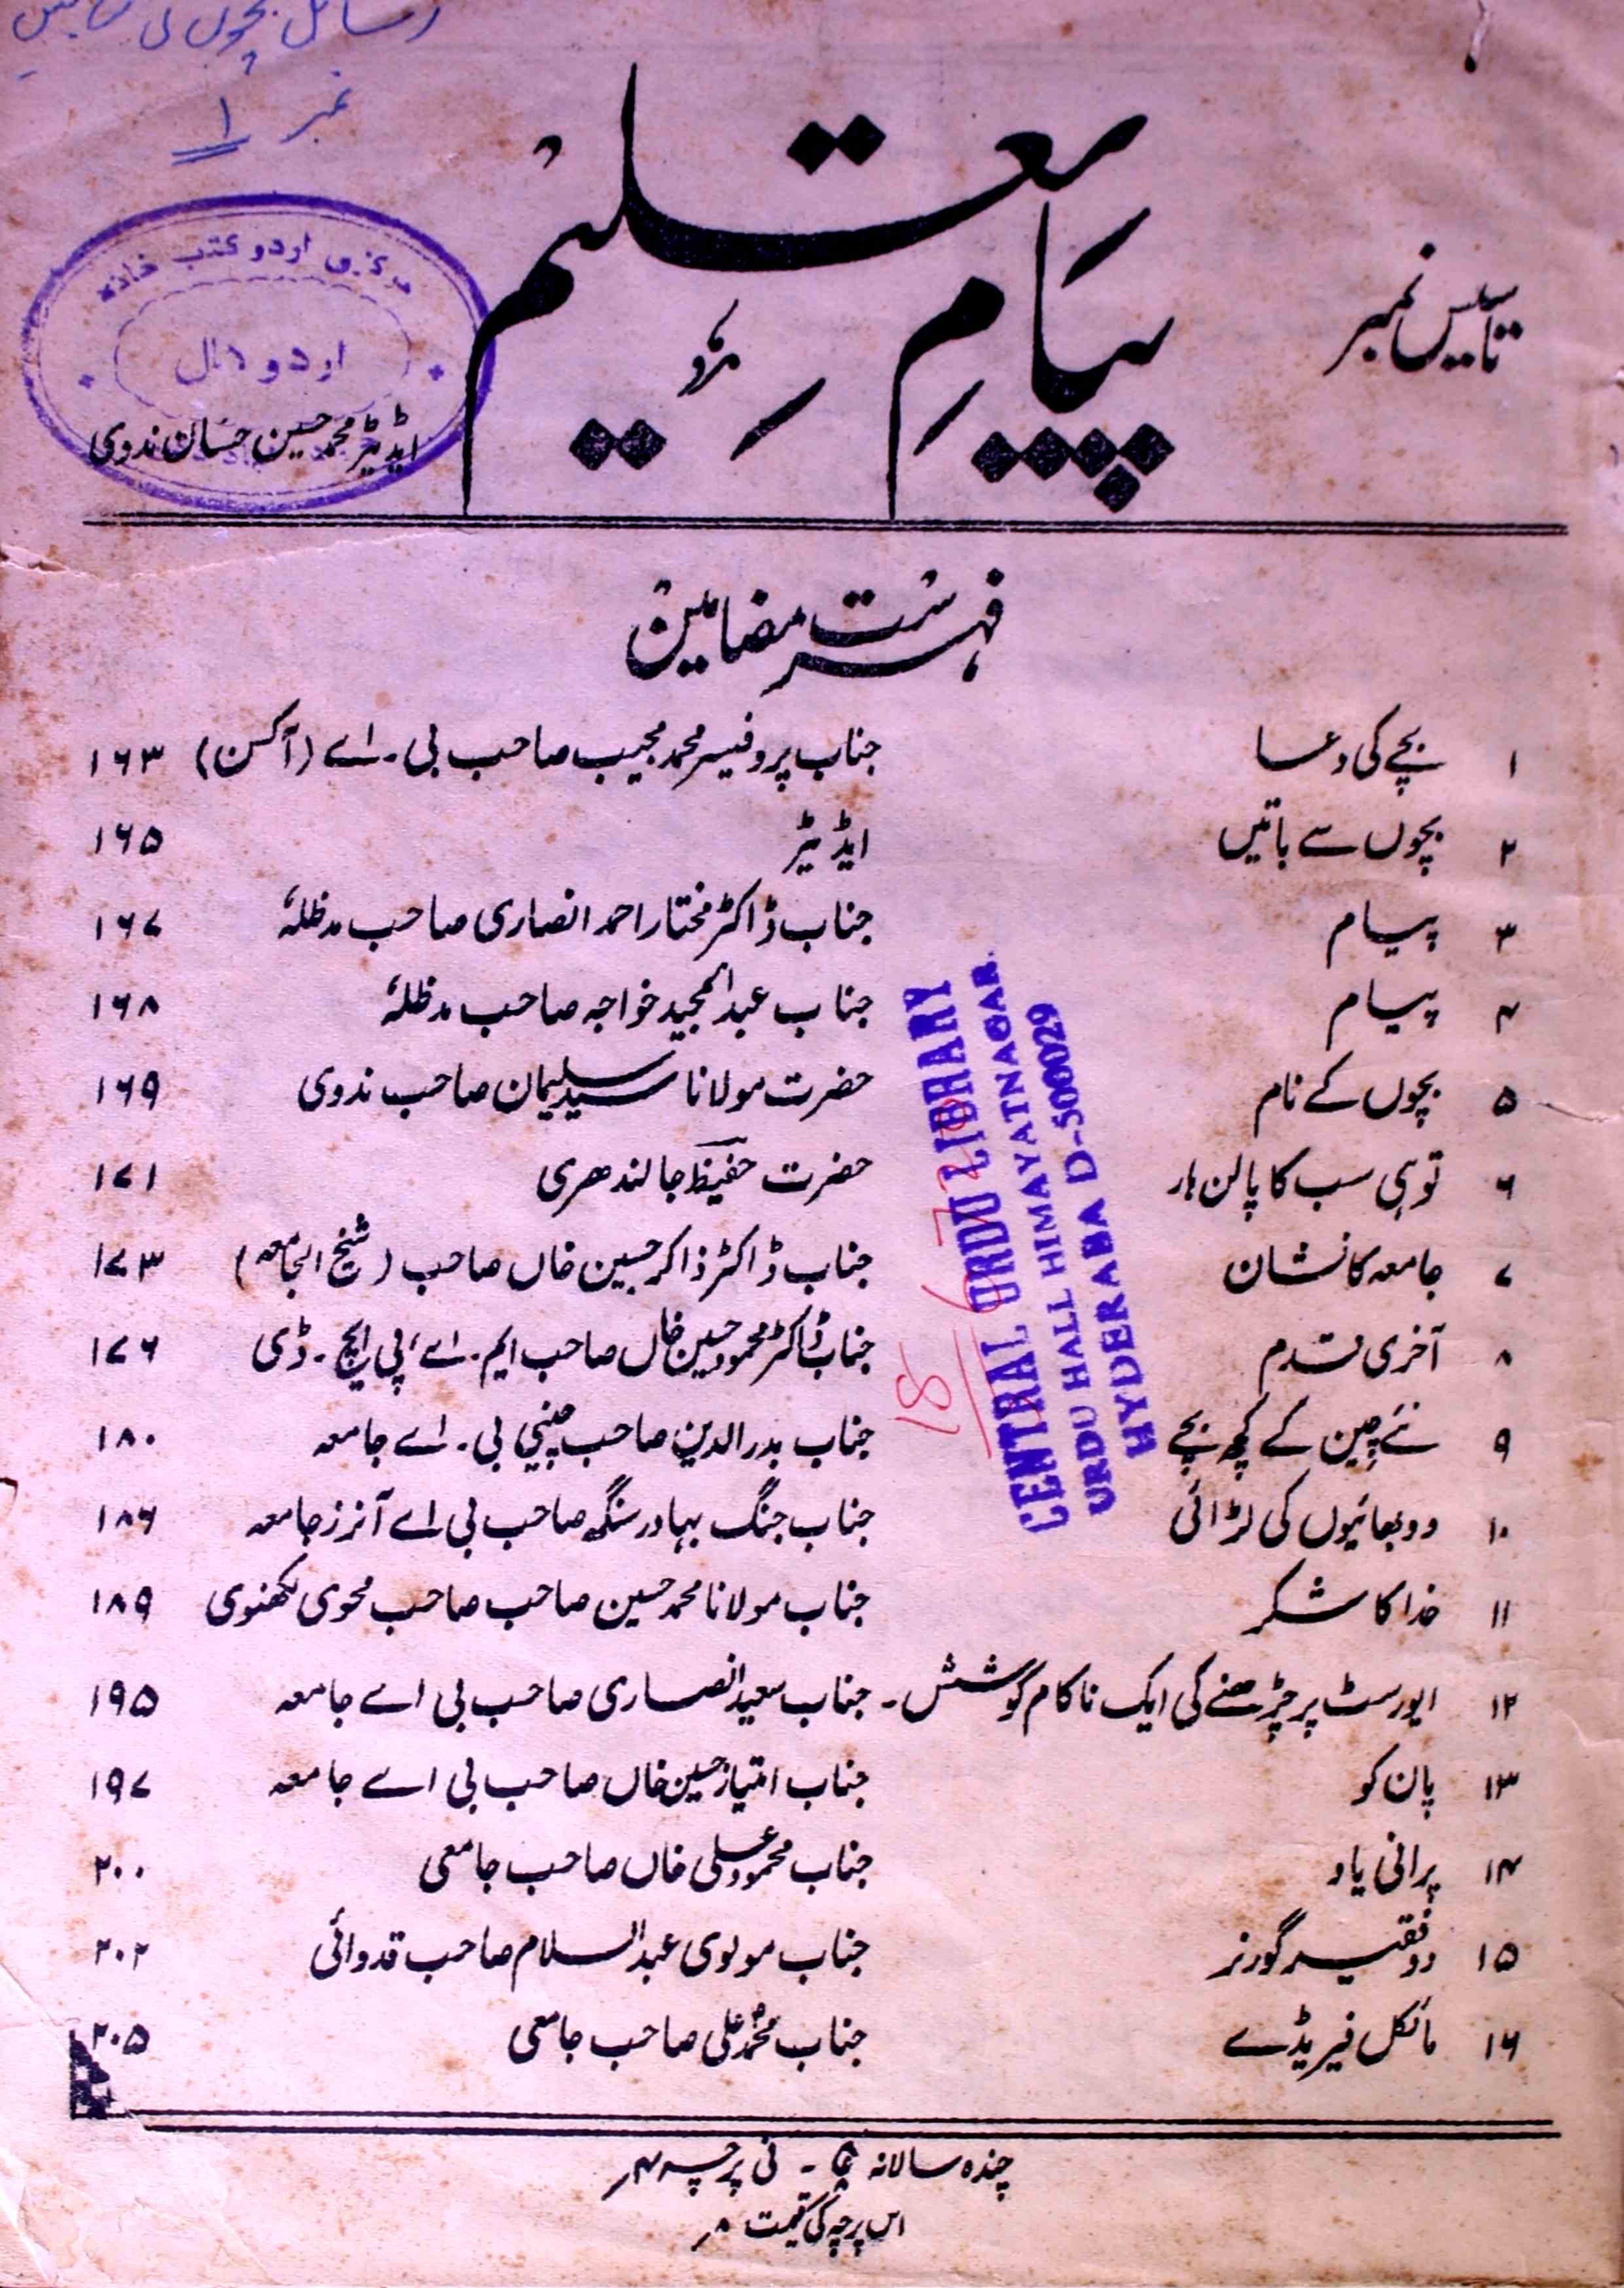 رسائل بچوں کی
نمبر ۱
پیامِ تعلیم
تاسیس نمبر
مرکزی اردو کتب خانہ
اردو ہال
ایڈیٹر محمد حسین حسان ندوی
فہرست مضامین
۱ بچے کی دعا جناب پروفیسر محمد مجیب صاحب بی۔ اے (آکسن) ۱۶۳
۲ بچوں سے باتیں ایڈیٹر ۱۶۵
۳ پیام جناب ڈاکٹر مختار احمد انصاری صاحب مدظلہٗ ۱۶۷
۴ پیام جناب عبدالمجید خواجہ صاحب مدظلہٗ ۱۶۸
۵ بچوں کے نام حضرت مولانا سید سلیمان صاحب ندوی ۱۶۹
۶ تو ہی سب کا پالن ہار حضرت حفیظؔ جالندھری ۱۷۱
۷ جامعہ کا نشان جناب ڈاکٹر ذاکر حسین خاں صاحب (شیخ الجامعہ) ۱۷۳
۸ آخری قدم جناب ڈاکٹر محمود حسین خاں صاحب ایم۔ اے، پی ایچ۔ ڈی ۱۷۶
۹ نئے چین کے کچھ بچے جناب بدر الدین صاحب چینی بی۔ اے جامعہ ۱۸۰
۱۰ دو بھائیوں کی لڑائی جناب جنگ بہادر سنگھ صاحب بی اے آنرز جامعہ ۱۸۶
۱۱ خدا کا شکر جناب مولانا محمد حسین صاحب صاحب محوی لکھنوی ۱۸۹
۱۲ ایورسٹ پر چڑھنے کی ایک ناکام کوشش۔ جناب سعید انصاری صاحب بی اے جامعہ ۱۹۵
۱۳ پان کو جناب امتیاز حسین خاں صاحب بی اے جامعہ ۱۹۷
۱۴ پرانی یاد جناب محمود علی خاں صاحب جامعی ۲۰۰
۱۵ دو فقیر گورنر جناب مولوی عبدالسلام صاحب قدوائی ۲۰۲
۱۶ مائکل فیریڈے جناب محمد علی صاحب جامعی ۲۰۵
CENTRAL URDU LIBRARY
URDU HALL HIMAYATNAGAR.
HYDERABAD-500029
181
چندہ سالانہ ۔ فی پرچہ ۴؍
اس پرچہ کی قیمت ۸؍